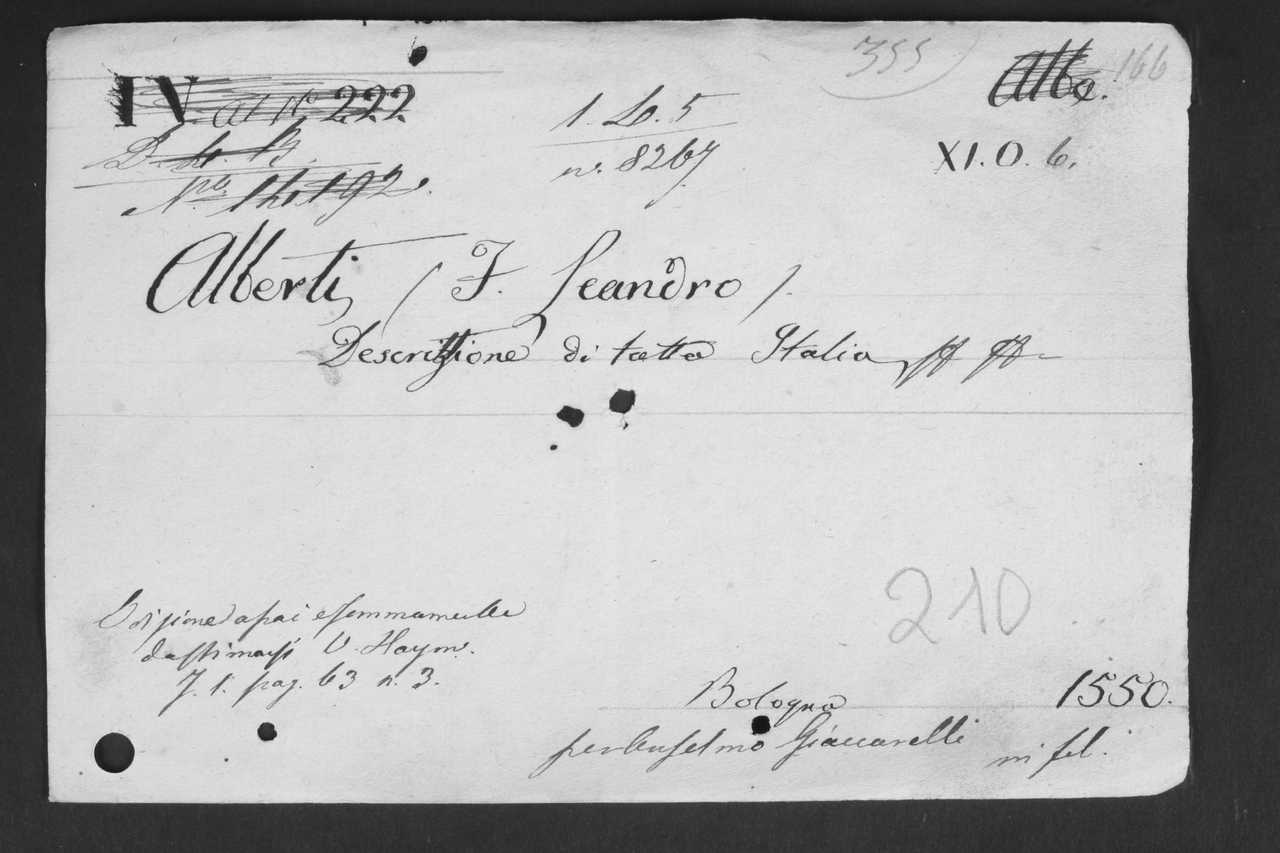 355
166
IV. at N° 222
Albe.
1. Lo. 5
n. 8267
XI. O 6.
Alberti, (F. Leandro).
Descrittione di tutta Italia, ff ff
210
Edizione assai e sommamente
da stimarsi V. Haym.
T. 1. pag. 63 n. 3.
Bologna 1550.
per Anselmo Giaccarelli in fol.